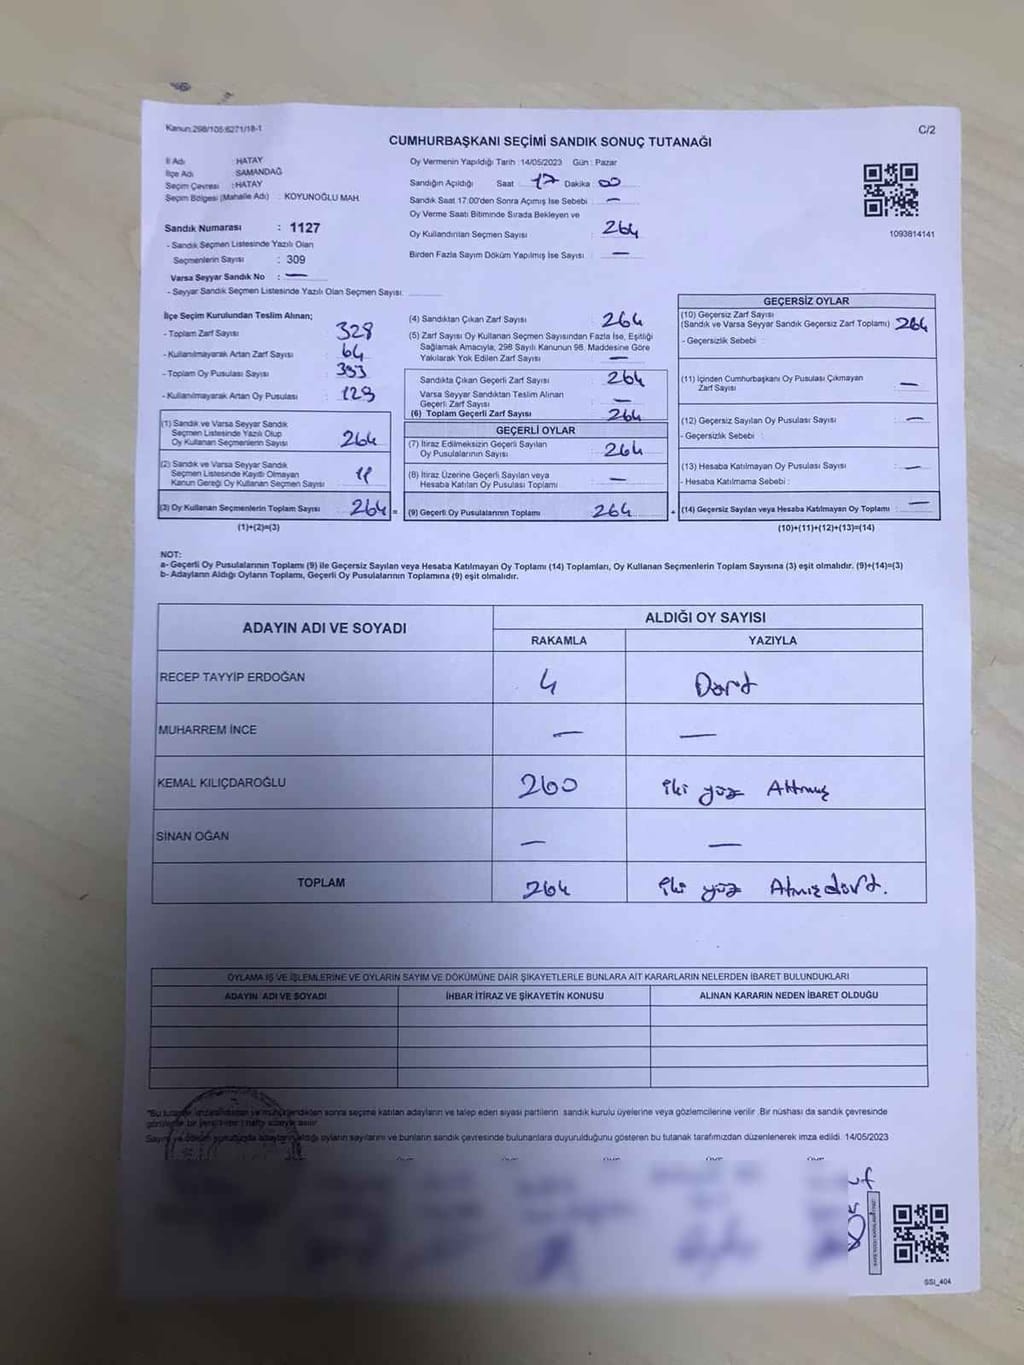 Kanun:298/105:6271/18-1
C/2
CUMHURBAŞKANI SEÇİMİ SANDIK SONUÇ TUTANAĞI
İl Adı : HATAY
İlçe Adı : SAMANDAĞ
Seçim Çevresi : HATAY
Seçim Bölgesi (Mahalle Adı) : KOYUNOĞLU MAH.
Sandık Numarası : 1127
- Sandık Seçmen Listesinde Yazılı Olan
Seçmenlerin Sayısı : 309
Varsa Seyyar Sandık No : —
- Seyyar Sandık Seçmen Listesinde Yazılı Olan Seçmen Sayısı:
Oy Vermenin Yapıldığı Tarih :14/05/2023 Gün : Pazar
Sandığın Açıldığı Saat 17 Dakika 00
Sandık Saat 17.00'den Sonra Açımış İse Sebebi : —
Oy Verme Saati Bitiminde Sırada Bekleyen ve
Oy Kullandırılan Seçmen Sayısı : 264
Birden Fazla Sayım Döküm Yapılmış İse Sayısı : —
1093814141
İlçe Seçim Kurulundan Teslim Alınan;
- Toplam Zarf Sayısı : 328
- Kullanılmayarak Artan Zarf Sayısı : 64
- Toplam Oy Pusulası Sayısı : 393
- Kullanılmayarak Artan Oy Pusulası : 129
(1) Sandık ve Varsa Seyyar Sandık
Seçmen Listesinde Yazılı Olup
Oy Kullanan Seçmenlerin Sayısı : 264
(2) Sandık ve Varsa Seyyar Sandık
Seçmen Listesinde Kayıtlı Olmayan
Kanun Gereği Oy Kullanan Seçmen Sayısı :
(3) Oy Kullanan Seçmenlerin Toplam Sayısı : 264 =
(1)+(2)=(3)
(4) Sandıktan Çıkan Zarf Sayısı : 264
(5) Zarf Sayısı Oy Kullanan Seçmen Sayısından Fazla İse, Eşitliği
Sağlamak Amacıyla, 298 Sayılı Kanunun 98. Maddesine Göre
Yakılarak Yok Edilen Zarf Sayısı : —
Sandıkta Çıkan Geçerli Zarf Sayısı : 264
Varsa Seyyar Sandıktan Teslim Alınan
Geçerli Zarf Sayısı : —
(6) Toplam Geçerli Zarf Sayısı : 264
GEÇERLİ OYLAR
(7) İtiraz Edilmeksizin Geçerli Sayılan
Oy Pusulalarının Sayısı : 264
(8) İtiraz Üzerine Geçerli Sayılan veya
Hesaba Katılan Oy Pusulası Toplamı : —
(9) Geçerli Oy Pusulalarının Toplamı : 264 +
GEÇERSİZ OYLAR
(10) Geçersiz Zarf Sayısı
(Sandık ve Varsa Seyyar Sandık Geçersiz Zarf Toplamı) : 264
- Geçersizlik Sebebi :
(11) İçinden Cumhurbaşkanı Oy Pusulası Çıkmayan
Zarf Sayısı : —
(12) Geçersiz Sayılan Oy Pusulası Sayısı : —
- Geçersizlik Sebebi :
(13) Hesaba Katılmayan Oy Pusulası Sayısı : —
- Hesaba Katılmama Sebebi :
(14) Geçersiz Sayılan veya Hesaba Katılmayan Oy Toplamı : —
(10)+(11)+(12)+(13)=(14)
NOT:
a- Geçerli Oy Pusulalarının Toplamı (9) ile Geçersiz Sayılan veya Hesaba Katılmayan Oy Toplamı (14) Toplamları, Oy Kullanan Seçmenlerin Toplam Sayısına (3) eşit olmalıdır. (9)+(14)=(3)
b- Adayların Aldığı Oyların Toplamı, Geçerli Oy Pusulalarının Toplamına (9) eşit olmalıdır.
ADAYIN ADI VE SOYADI
ALDIĞI OY SAYISI
RAKAMLA YAZIYLA
RECEP TAYYİP ERDOĞAN 4 Dört
MUHARREM İNCE — —
KEMAL KILIÇDAROĞLU 260 iki yüz Altmış
SİNAN OĞAN — —
TOPLAM 264 iki yüz Atmış dört.
OYLAMA İŞ VE İŞLEMLERİNE VE OYLARIN SAYIM VE DÖKÜMÜNE DAİR ŞİKAYETLERLE BUNLARA AİT KARARLARIN NELERDEN İBARET BULUNDUKLARI
ADAYIN ADI VE SOYADI İHBAR İTİRAZ VE ŞİKAYETİN KONUSU ALINAN KARARIN NEDEN İBARET OLDUĞU
"Bu tutanak sonra seçime katılan adayların ve talep eden siyasi partilerin sandık kurulu üyelerine veya gözlemcilerine verilir .Bir nüshası da sandık çevresinde
oyların sayılarını ve bunların sandık çevresinde bulunanlara duyurulduğunu gösteren bu tutanak tarafımızdan düzenlenerek imza edildi. 14/05/2023
SSI_404